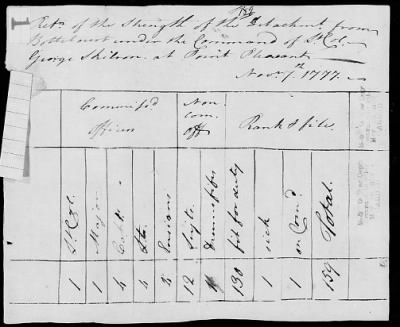 Retn of the Strength of the Detachment from
Bottetourt under the Command of Lt Col.
George Skilron at Point Pleasant
Novr 7th 1777
Commis'd officers
Non com. off
Rank & file
Lt Col.
Major
Captn
Lts
Ensigns
Serjts
Drums & fifes
fit for duty
sick
on Comd
Total
1
1
4
4
5
12
130
1
1
159